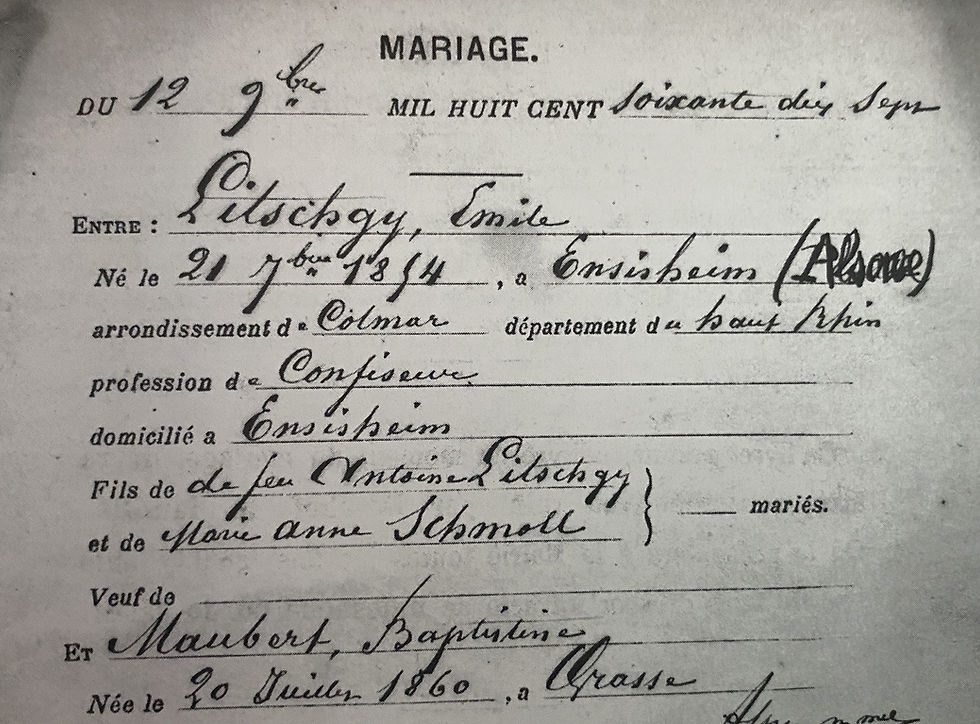 MARIAGE.
DU 12 9bre MIL HUIT CENT soixante dix Sept
ENTRE : Litschgy, Emile
Né le 21 7bre 1854, a Ensisheim (Alsace)
arrondissement de Colmar département du haut Rhin
profession de Confiseur
domicilié a Ensisheim
Fils de de feu Antoine Litschgy
et de Marie anne Schmoll } mariés.
Veuf de
ET Maubert, Baptistine
Née le 20 Juillet 1860, a Grasse